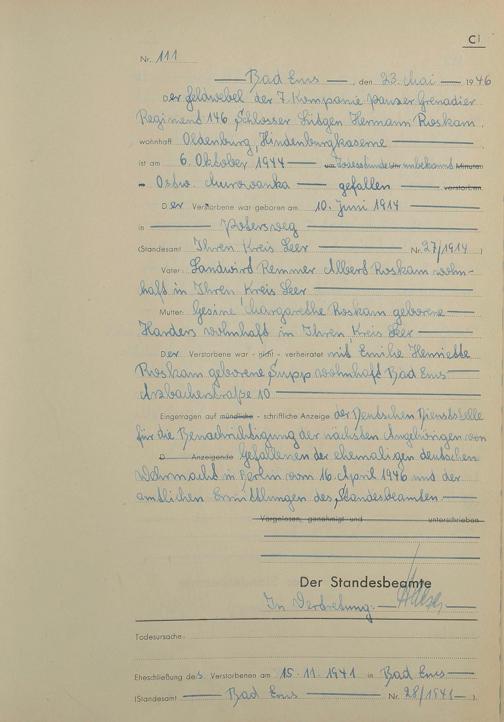 C1
Nr. 111
Bad Ems, den 23. Mai 1946
Der Feldwebel der 7. Kompanie Panzer Grenadier
Regiment 146, Schlosser Lütgen Hermann Roskam
wohnhaft Oldenburg, Hindenburgkaserne
ist am 6. Oktober 1944 um Todesstunde Uhr unbekannt Minuten
in Ostw. gefallen verstorben.
Der Verstorbene war geboren am 10. Juni 1914
in Potersweg
(Standesamt Ihren Kreis Leer Nr. 27/1914)
Vater: Landwird Remmer Albert Roskam wohn-
haft in Ihren Kreis Leer
Mutter: Gesine Margarethe Roskam geborene
Harders wohnhaft in Ihren Kreis Leer
Der Verstorbene war - nicht - verheiratet mit Emilie Henriette
Roskam geborene Supp wohnhaft Bad Ems
Arzbacherstraße 10
Eingetragen auf mündliche - schriftliche Anzeige der Deutschen Dienststelle
für die Benachrichtigung der nächsten Angehörigen von
D Anzeigende Gefallenen der ehemaligen deutschen
Wehrmacht in Berlin vom 16. April 1946 und der
amtlichen Ermittlungen des Standesbeamten
Vorgelesen, genehmigt und unterschrieben
Der Standesbeamte
In Vertretung:
Todesursache:
Eheschließung des Verstorbenen am 15.11.1941 in Bad Ems
(Standesamt Bad Ems Nr. 28/1941).